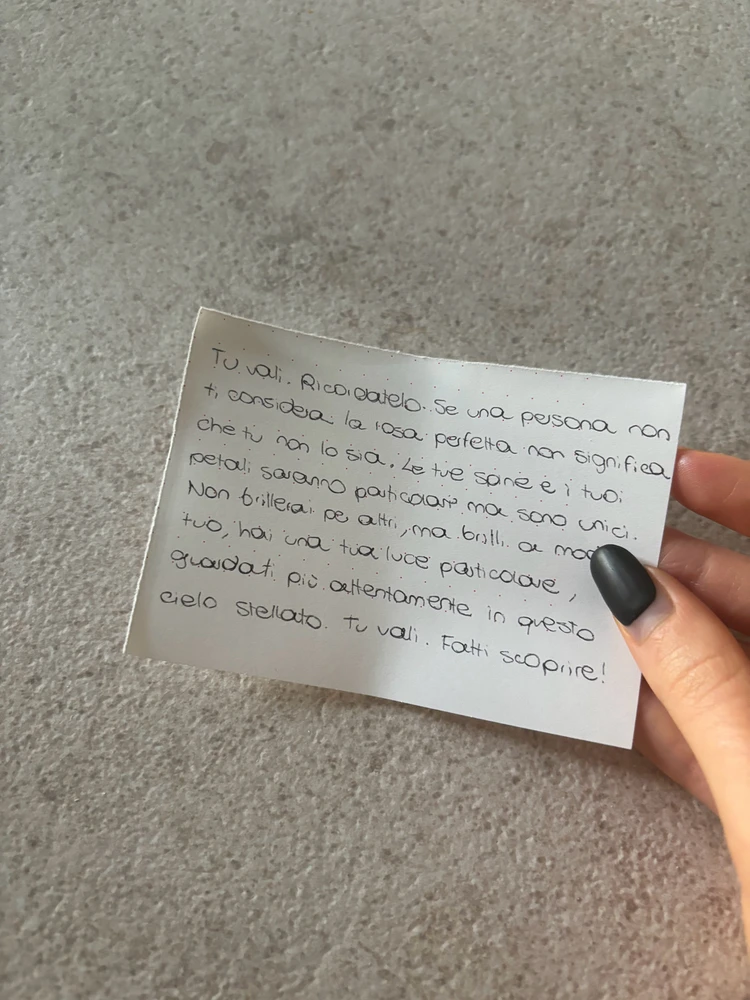 Tu vali. Ricordatelo. Se una persona non
ti considera la rosa perfetta non significa
che tu non lo sia. Le tue spine e i tuoi
petali saranno particolari ma sono unici.
Non brillerai pe altri, ma brilli a mod
tuo, hai una tua luce particolare,
guardati più attentamente in questo
cielo stellato. Tu vali. Fatti scoprire!